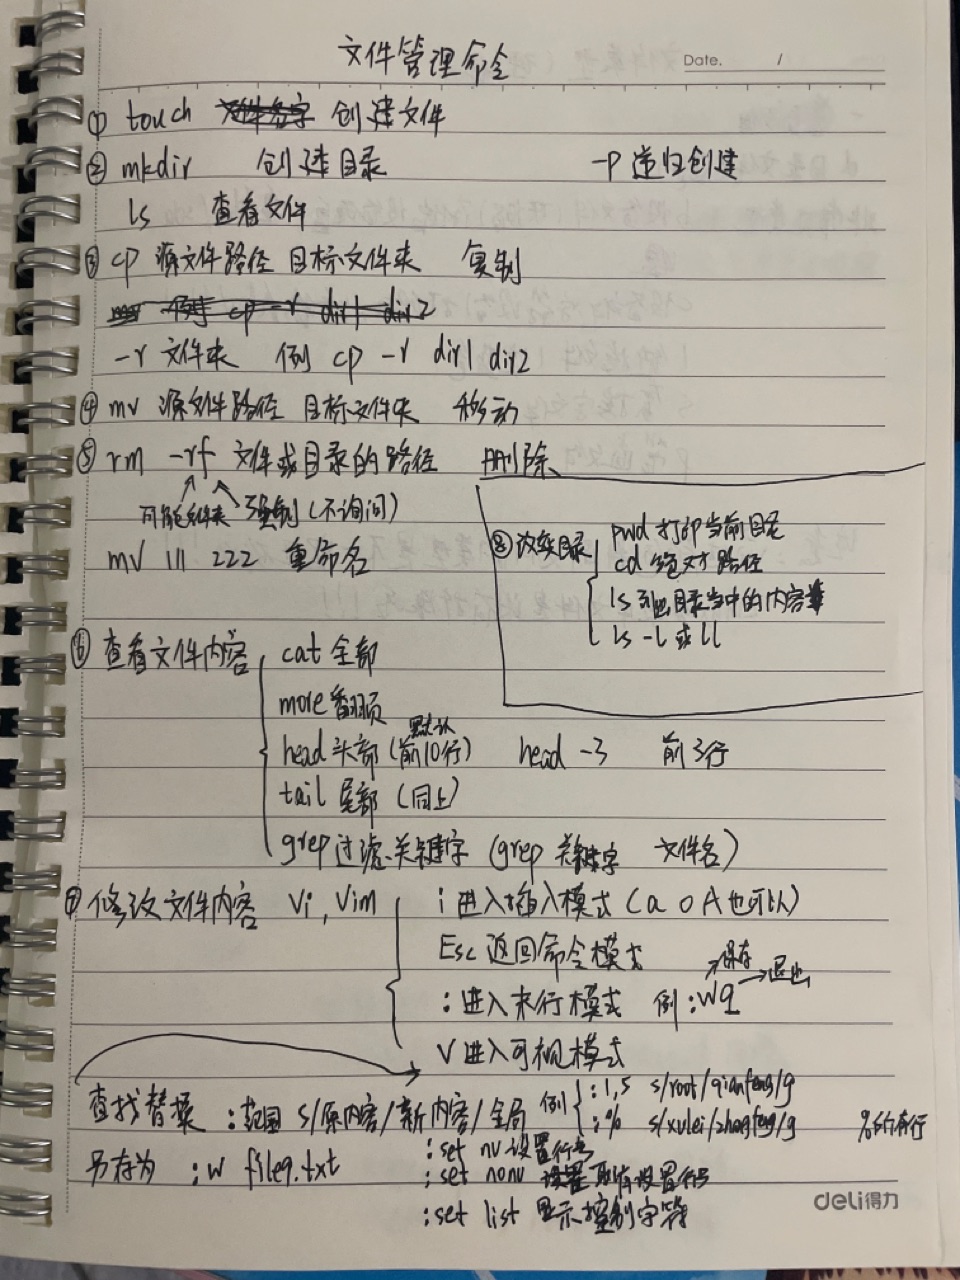 文件管理命令
Date. /
① touch 创建文件
② mkdir 创建目录 -p 递归创建
ls 查看文件
③ cp 源文件路径 目标文件夹 复制
例 cp -r dir1 dir2
-r 文件夹 例 cp -r dir1 dir2
④ mv 源文件路径 目标文件夹 移动
⑤ rm -rf 文件或目录的路径 删除
可能文件夹 强制(不询问)
mv 111 222 重命名
⑧ 改变目录
pwd 打印当前目录
cd 绝对路径
ls 列出目录当中的内容
ls -l 或 ll
⑥ 查看文件内容
cat 全部
more 翻页
head 头部(默认前10行) head -3 前3行
tail 尾部(同上)
grep 过滤关键字 (grep 关键字 文件名)
⑦ 修改文件内容 Vi, Vim
i 进入插入模式(a o A也可以)
Esc 返回命令模式
: 进入末行模式 例 :wq
保存
退出
V 进入可视模式
查找替换 :范围 s/原内容/新内容/全局
例 :1,5 s/root/qianfeng/g
:% s/xulei/zhangfeng/g %所有行
另存为 :w file9.txt
:set nu 设置行号
:set nonu 取消设置行号
:set list 显示控制字符
deli得力